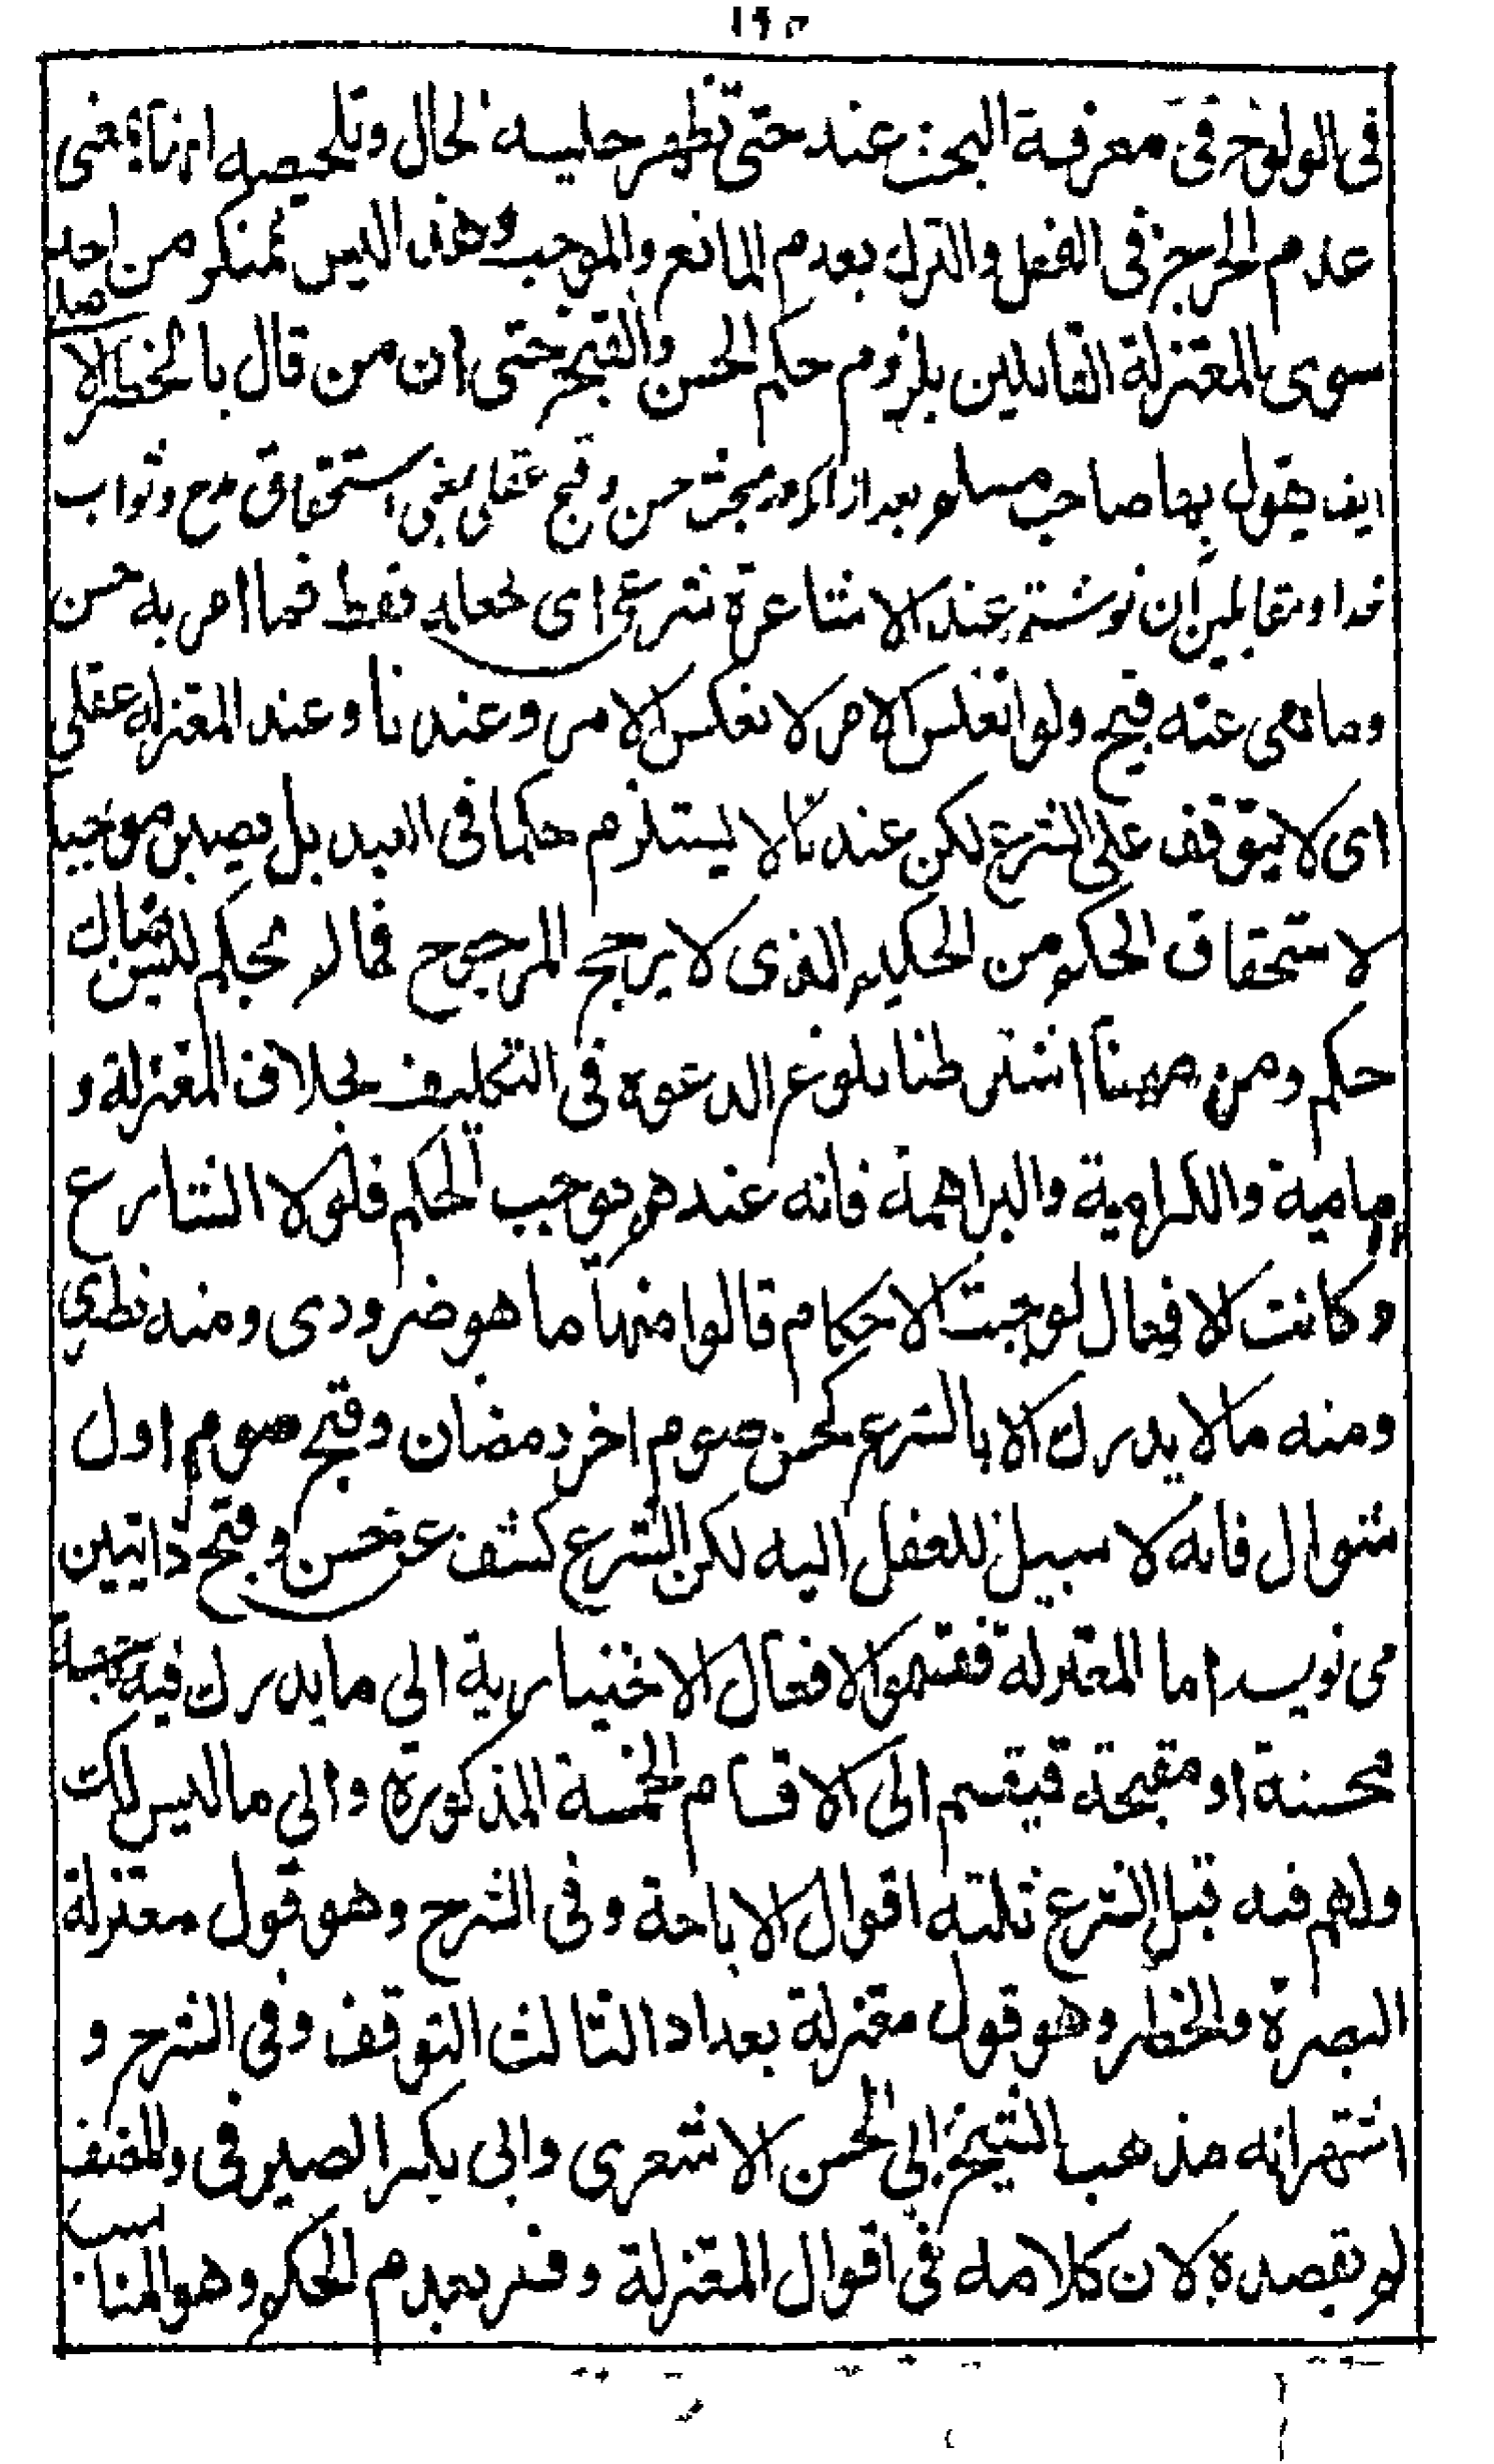 ١٩٥
فى الولوج فى معرفة البحث عند حتى تظهر جليسه الحال وتلخيصه ان بمعنى
عدم الحرج فى الفعل والترك بعدم المانع والموجب وهذا ليس بمنكر من احد
سوى المعتزلة القايلين بلزوم حكم الحسن والقبح حتى ان من قال بالخطر لا
ايف يقول بها صاحب مسلم بعد از ذكر در مبحث حسن و قبح عقلى بمعنى استحقاق مدح و ثواب
خدا و مقابلين ان نوشته عند الاشاعرة شرعى اى لجعله فقط فما امر به حسن
وما نهى عنه قبيح ولو انعكس الامر لا نعكس الامر وعندنا وعند المعتزله عقلى
اى لا يتوقف على الشرع لكن عندنا لا يستلزم حكما فى العبد بل يصير موجبا
لاستحقاق الحكم من الحكيم الذى لا يرجح المرجوح فما لم يحكم ليس هناك
حكم ومن ههنا اشترطنا بلوغ الدعوة فى التكليف بخلاف المعتزلة و
امامية والكرامية والبراهمة فانه عندهم موجب الحكم فلولا الشارع
وكانت الافعال لوجبت الاحكام قالوا منها ما هو ضرورى ومنه نظرى
ومنه مالا يدرك الا بالشرع كحسن صوم اخر رمضان وقبح صوم اول
شوال فانه لا سبيل للعقل اليه لكن الشرع كشف عن حسن و قبح ذاتيين
مى نويسد اما المعتزلة فقسموا الافعال الاختيارية الى ما يدرك فيه جهة
محسنة او مقبحة فيقسم الى الاقسام الخمسة المذكورة والى ما ليس كذلك
ولهم فيه قبل الشرع ثلثه اقوال الاباحة وفى الشرح وهو قول معتزلة
البصرة والخطر وهو قول معتزلة بغداد الثالث التوقف وفى الشرح و
اشتهر انه مذهب الشيخ ابى الحسن الاشعرى وابى بكر الصيرفى والمصنف
لم يقصده لان كلامه فى اقوال المعتزلة وفسر بعدم الحكم وهو المناسب